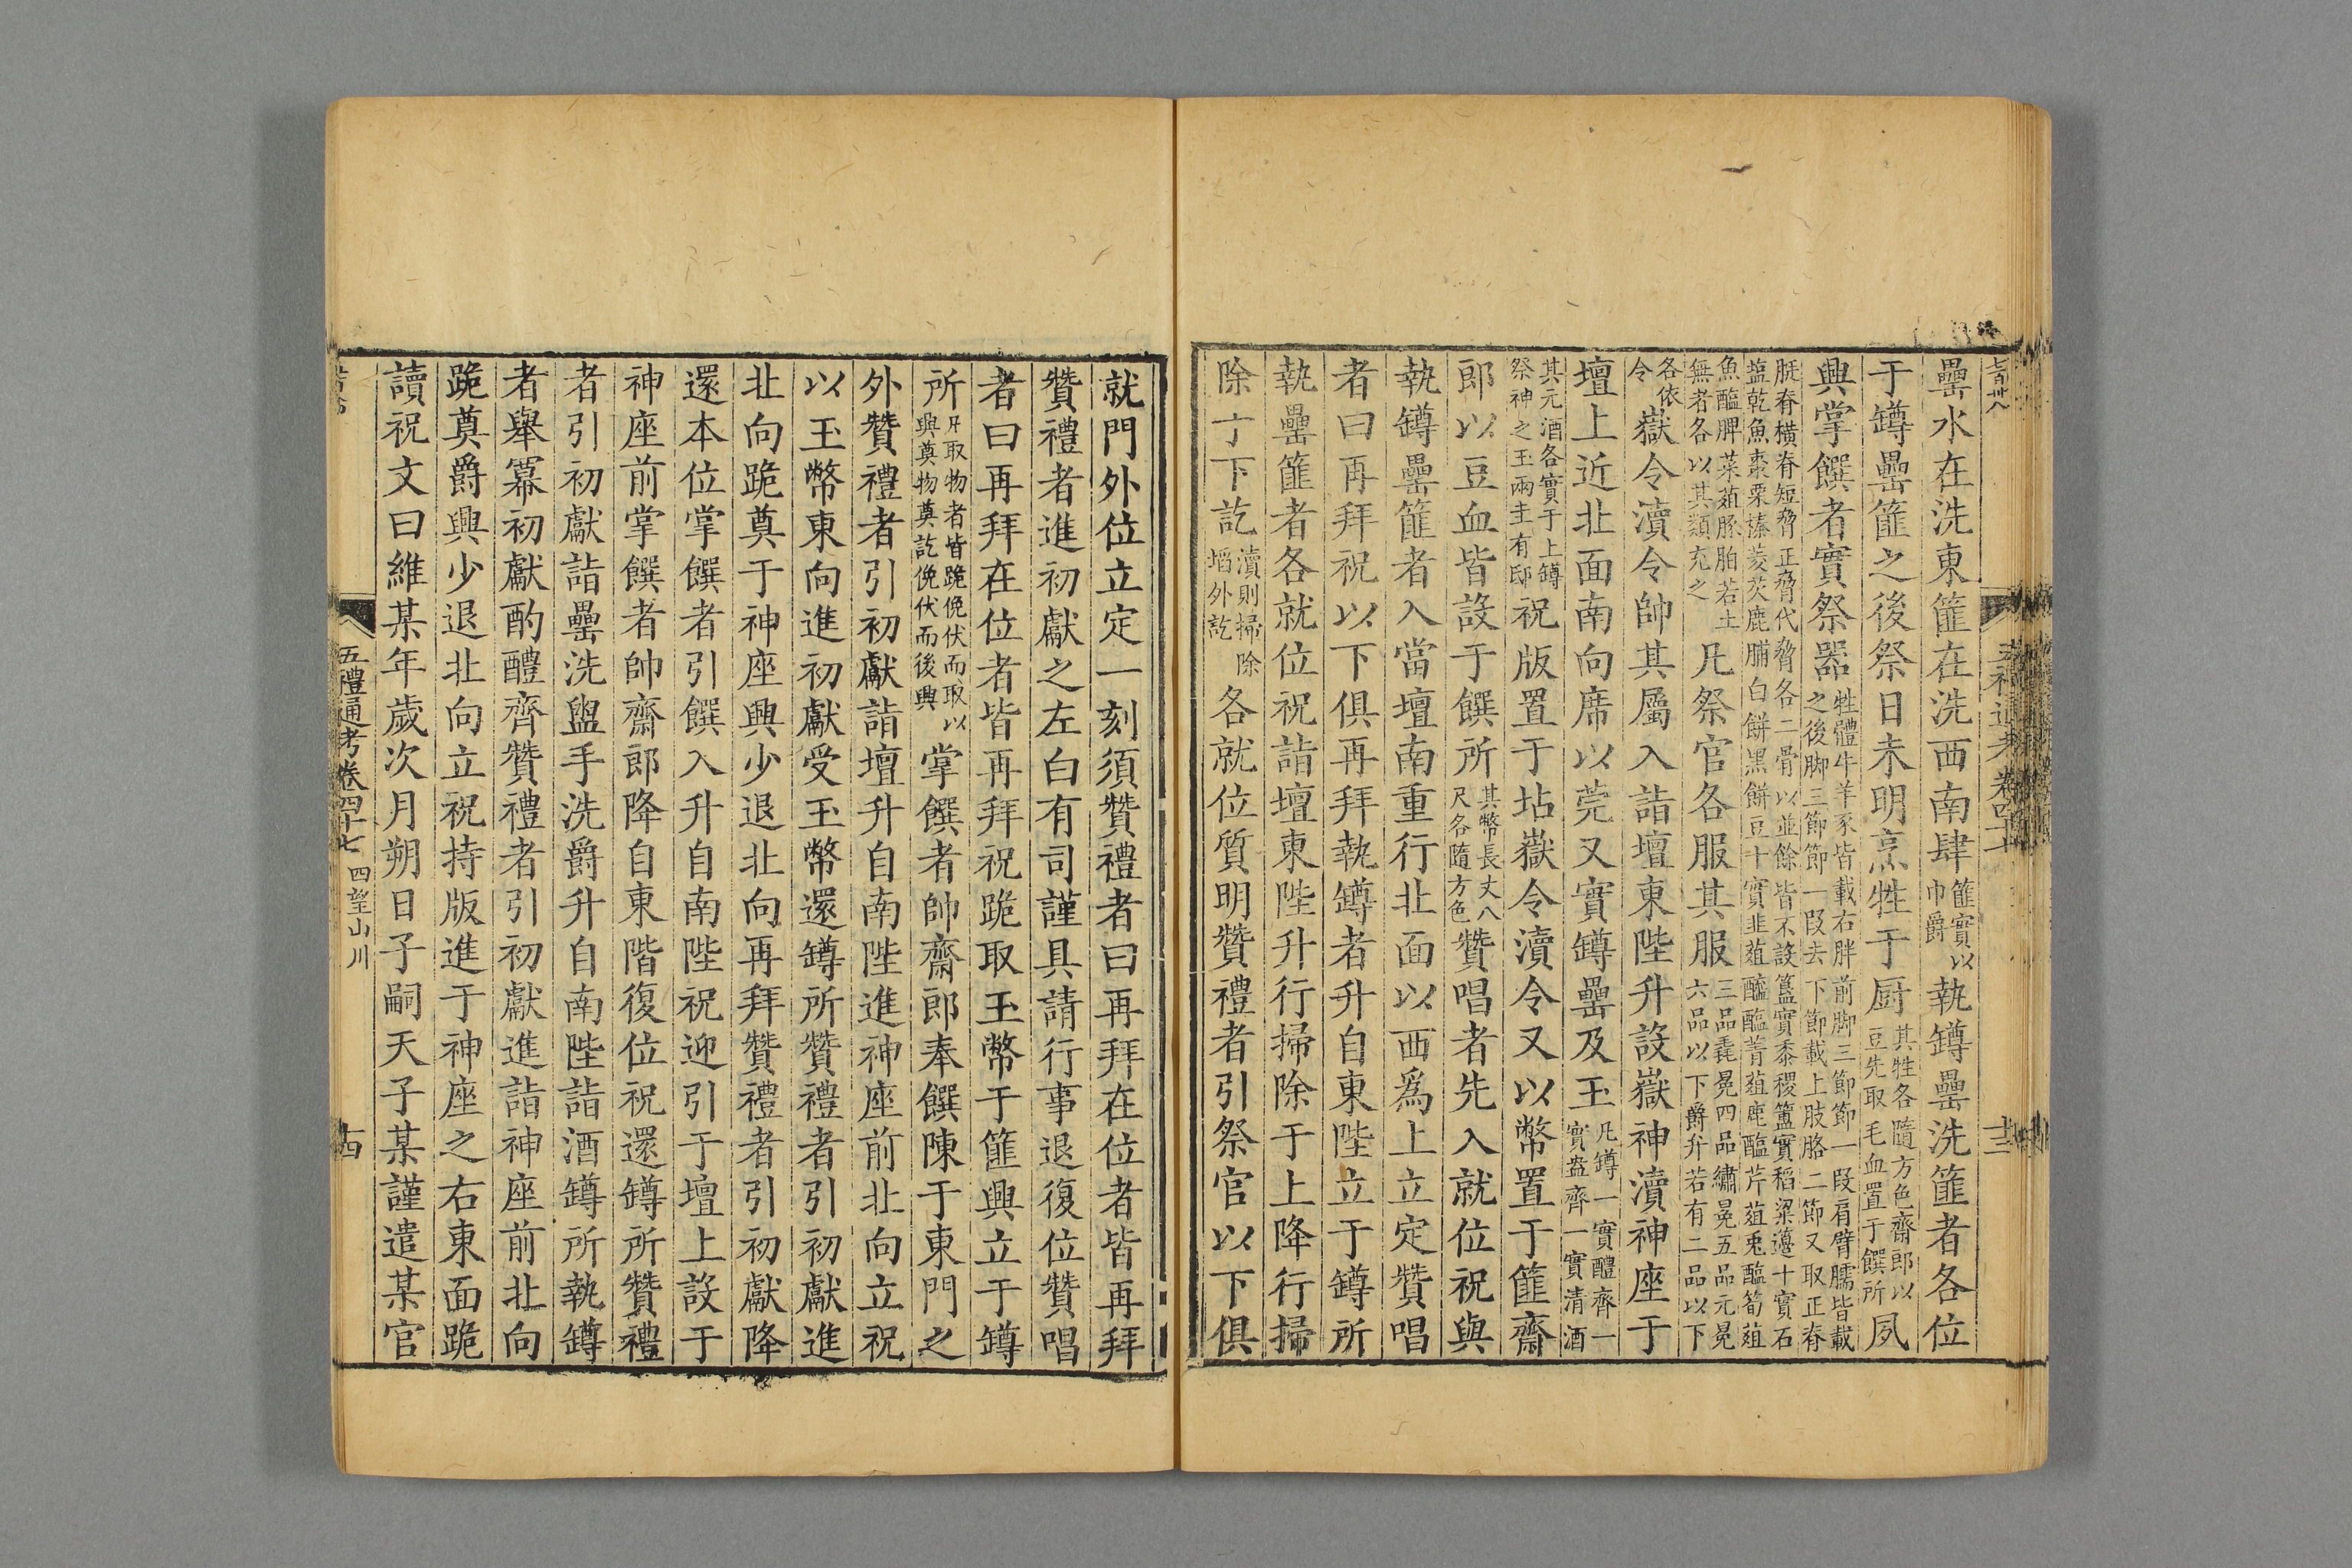 罍水在洗東篚在洗西南肆篚實以巾爵執罇罍洗篚者各位
于罇罍篚之後祭日未明烹牲于厨其牲各隨方色齋郎以豆先取毛血置于饌所夙
興掌饌者實祭器牲體牛羊豕皆載右胖前脚三節節一段肩臂臑皆載之後脚三節節一段去下節載上肢胳二節又取正脊
脡脊橫脊短脅正脅代脅各二骨以並餘皆不設簋實黍稷簠實稻粱籩十實石塩乾魚棗栗榛菱芡鹿脯白餅黑餅豆十實韭葅醓醢菁葅鹿醢芹葅兎醢筍葅
魚醢脾菜葅豚胉若土無者各以其類充之凡祭官各服其服三品毳冕四品繡冕五品元冕六品以下爵弁若有二品以下
各依令嶽令瀆令帥其屬入詣壇東陛升設嶽神瀆神座于
壇上近北面南向席以莞又實罇罍及玉凡罇一實醴齊一實盎齊一實清酒
其元酒各實于上罇祭神之玉兩圭有邸祝版置于坫嶽令瀆令又以幣置于篚齋
郎以豆血皆設于饌所其幣長丈八尺各隨方色贊唱者先入就位祝與
執罇罍篚者入當壇南重行北面以西爲上立定贊唱
者曰再拜祝以下俱再拜執罇者升自東陛立于罇所
執罍篚者各就位祝詣壇東陛升行掃除于上降行掃
除于下訖瀆則掃除壇外訖各就位質明贊禮者引祭官以下俱
就門外位立定一刻須贊禮者曰再拜在位者皆再拜
贊禮者進初獻之左白有司謹具請行事退復位贊唱
者曰再拜在位者皆再拜祝跪取玉幣于篚興立于罇
所凡取物者皆跪俛伏而取以興奠物奠訖俛伏而後興掌饌者帥齋郎奉饌陳于東門之
外贊禮者引初獻詣壇升自南陛進神座前北向立祝
以玉幣東向進初獻受玉幣還罇所贊禮者引初獻進
北向跪奠于神座興少退北向再拜贊禮者引初獻降
還本位掌饌者引饌入升自南陛祝迎引于壇上設于
神座前掌饌者帥齋郎降自東階復位祝還罇所贊禮
者引初獻詣罍洗盥手洗爵升自南陛詣酒罇所執罇
者舉冪初獻酌醴齊贊禮者引初獻進詣神座前北向
跪奠爵興少退北向立祝持版進于神座之右東面跪
讀祝文曰維某年歲次月朔日子嗣天子某謹遣某官
五禮通考卷四十七 四望山川 十四